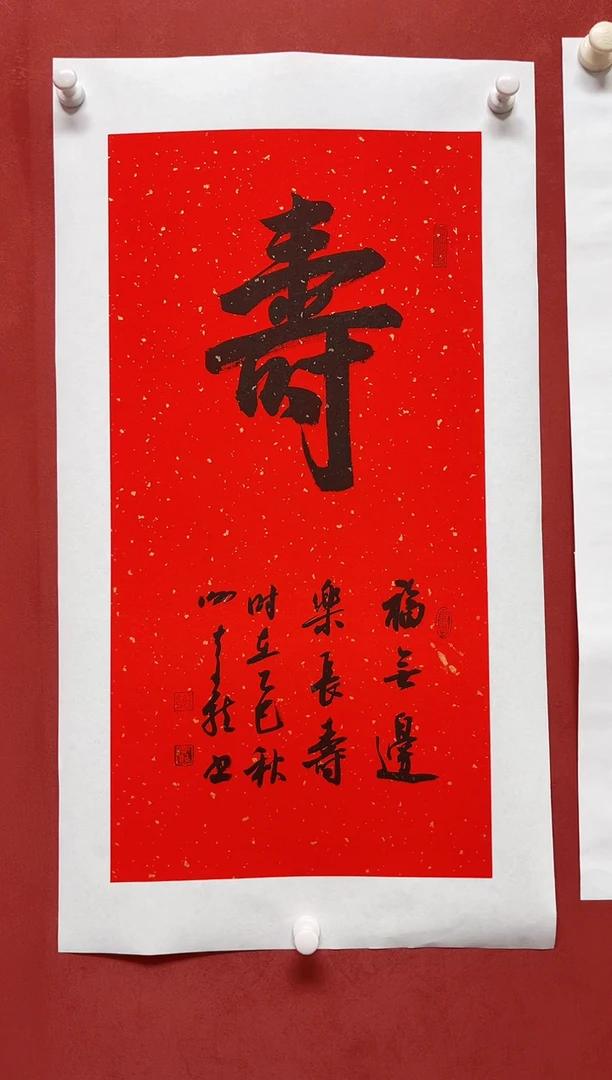 壽
福無邊
樂長壽
时在乙巳秋
书